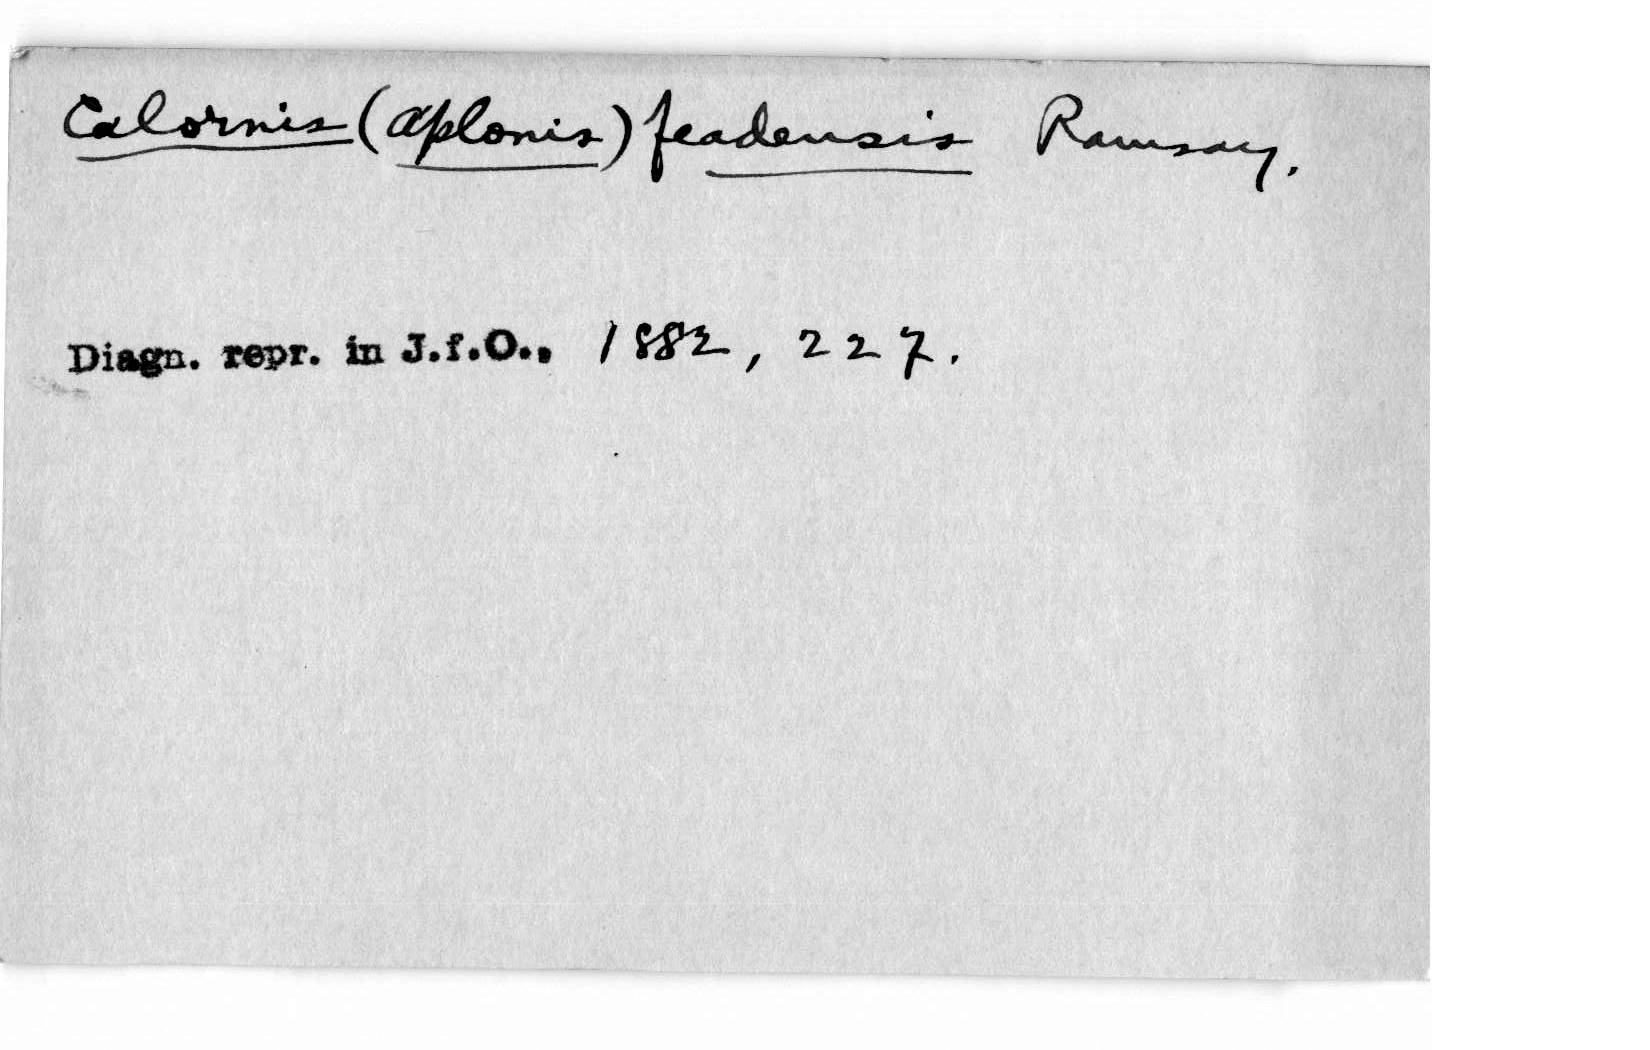 Calornis (Aplonis) feadensis Ramsay.
Diagn. repr. in J.f.O., 1882, 227.